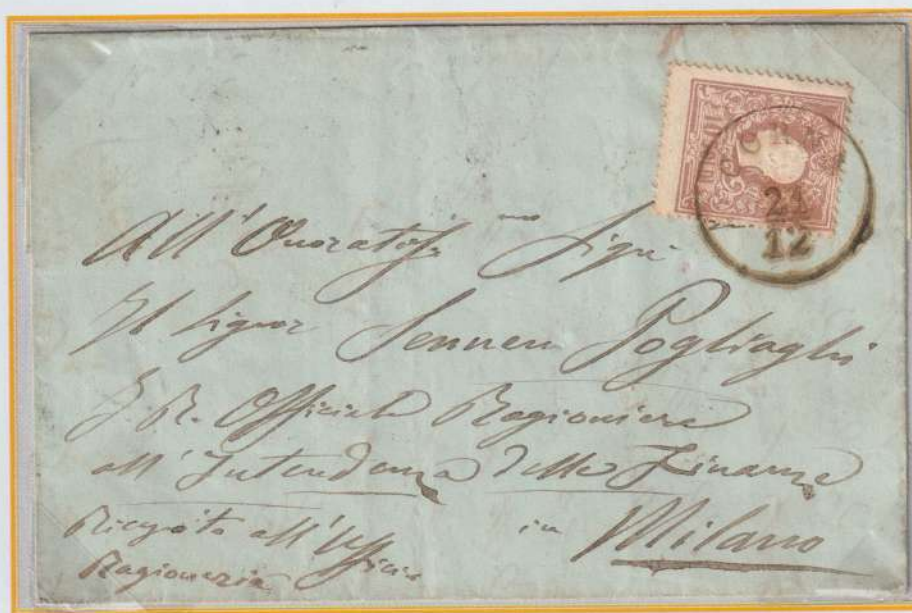 21
12
All' Onoratiss.mo Sigr
Il Signor Sennen Pogliaghi
I. R. Officiale Ragioniere
all' Intendenza delle Finanze
in Milano
Recapito all' Officio
Ragioneria